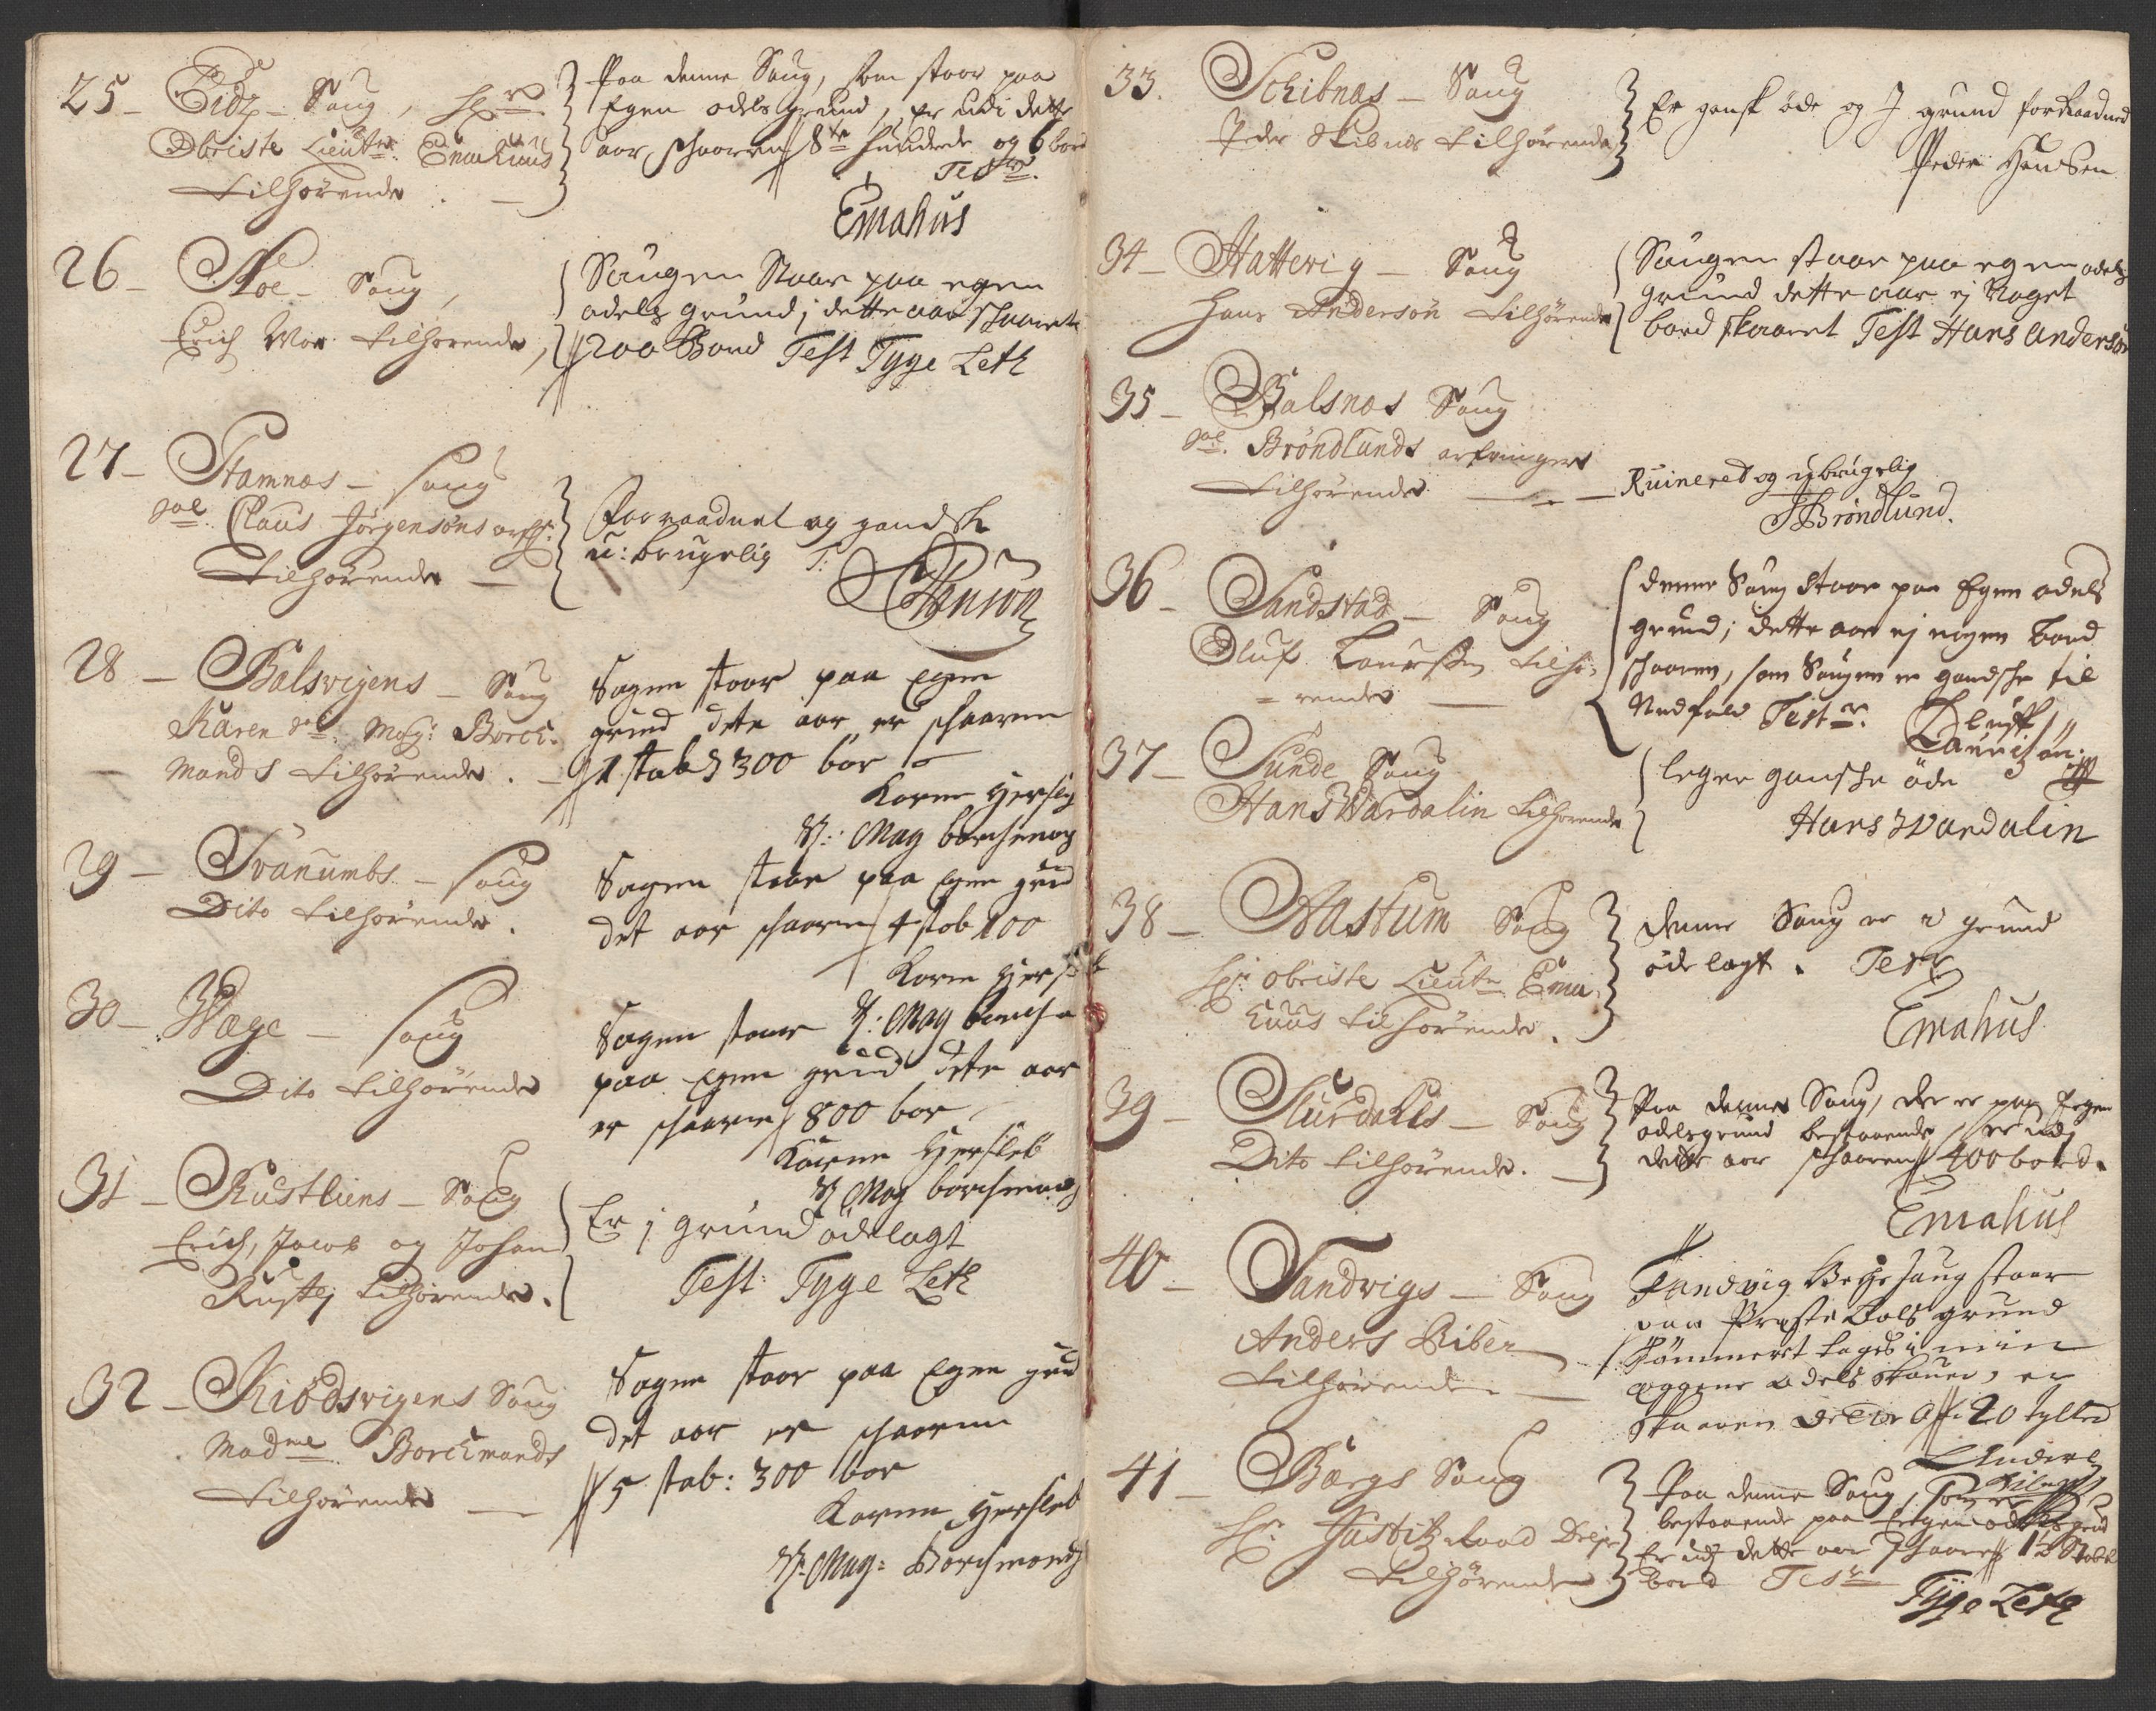 25 - Eidz - Saug, Hr.
Obriste Lieutn: Emahuus
tilhørende . —
Paa denne Saug, som staar paa
Egen odels grund, er udi dette
aar schaaren 8te hundrede og 6 bord
Testr.
Emahus
26 - Moe - Saug,
Erich Moe tilhørende,
Saugen Staar paa egen
odels grund; dette aar schaaret
200 Bord Test Tyge Leth
27 - Stamnæs - Saug
Sal. Claus Jørgensøns arfr:
tilhørende —
Forraadnet og gandsk
u:brugelig T:
28 - Balsvigens - Saug
Karen Sal. Mag: Borch-
mands tilhørende . —
Sagen staar paa Egen
grund dete aar er schaaren
1 stab 300 bor
Karen Hersleb
S: Mag borchmans
29 - Svanumbs - Saug
Dito tilhørende .
Sagen staar paa Egen grund
det aar schaaren 4 stab 100
Karen Hersleb
S: Mag borchma
30 - Wæge - Saug
Dito tilhørende
Sagen staar
paa Egen grund dete aar
er schaaren 800 bor
Karen Hersleb
S Mag borchmans
31 - Rustliens - Saug
Erich, Jacob og Johan
Rustlj tilhørende.
Er j grund ødelagt
Test: Tyge Leth
32 - Kiødsvigens Saug
Madme Borchmands
tilhørende —
Sagen staar paa Egen grund
det aar er schaaren
5 stab: 300 bor
Karen Hersleb
S. Mag: Borchmands
33. Schibnas - Saug
Peder Skibnes tilhørende
Er gansk øde og I grund forraadned
Peder Hansen
34 - Hattevig - Saug
Hans Andersøn tilhørende
Saugen staar paa egen odels
grund dette aar ej noget
bord skaaret Test Hans Andersøn
35 - Balsnas Saug
Sal. Brøndlunds arfvinger
tilhørende — Ruinered og ubrugelig
JBrøndlund.
36 - Sandstad - Saug
Oluf Laursøn tilhø-
= rende —
denne Saug staar paa Egen odels
grund; dette aar ej nogen bord
schaaren, som Saugen er gandsche til
Nedfald Testr. Oluff
Lauritsøn
37 - Sunde Saug
Hans Wardalin tilhørende
leger gansche øde
Hans Wardalin
38 - Aastum Saug
Hr: Obriste Lieutn Ema
huus tilhørende .
denne Saug er i grund
ødelagt . Testr
Emahus
39 - Slurdahls - Saug
Dito tilhørende . —
Paa denne Saug, der er paa Egen
odelsgrund bestaaende, er udj
dette aar schaaren 400 bord.
Emahus
40 - Sandvigs - Saug
Anders Riber
tilhørende —
Sandvig Saug staar
paa Præste bols grund
tømmeret tages i min
Eggene odels skauer, er
skaaren dette Aar 20 tylter
Anders
Riber
41 - Bærgs Saug
Hr: Justitz Raad
tilhørende
Paa denne Saug, som er
bestaaende paa Eegen odels grund
Er udj dette aar schaaren 1½ Stabel
bord Testr
Tyge Leth